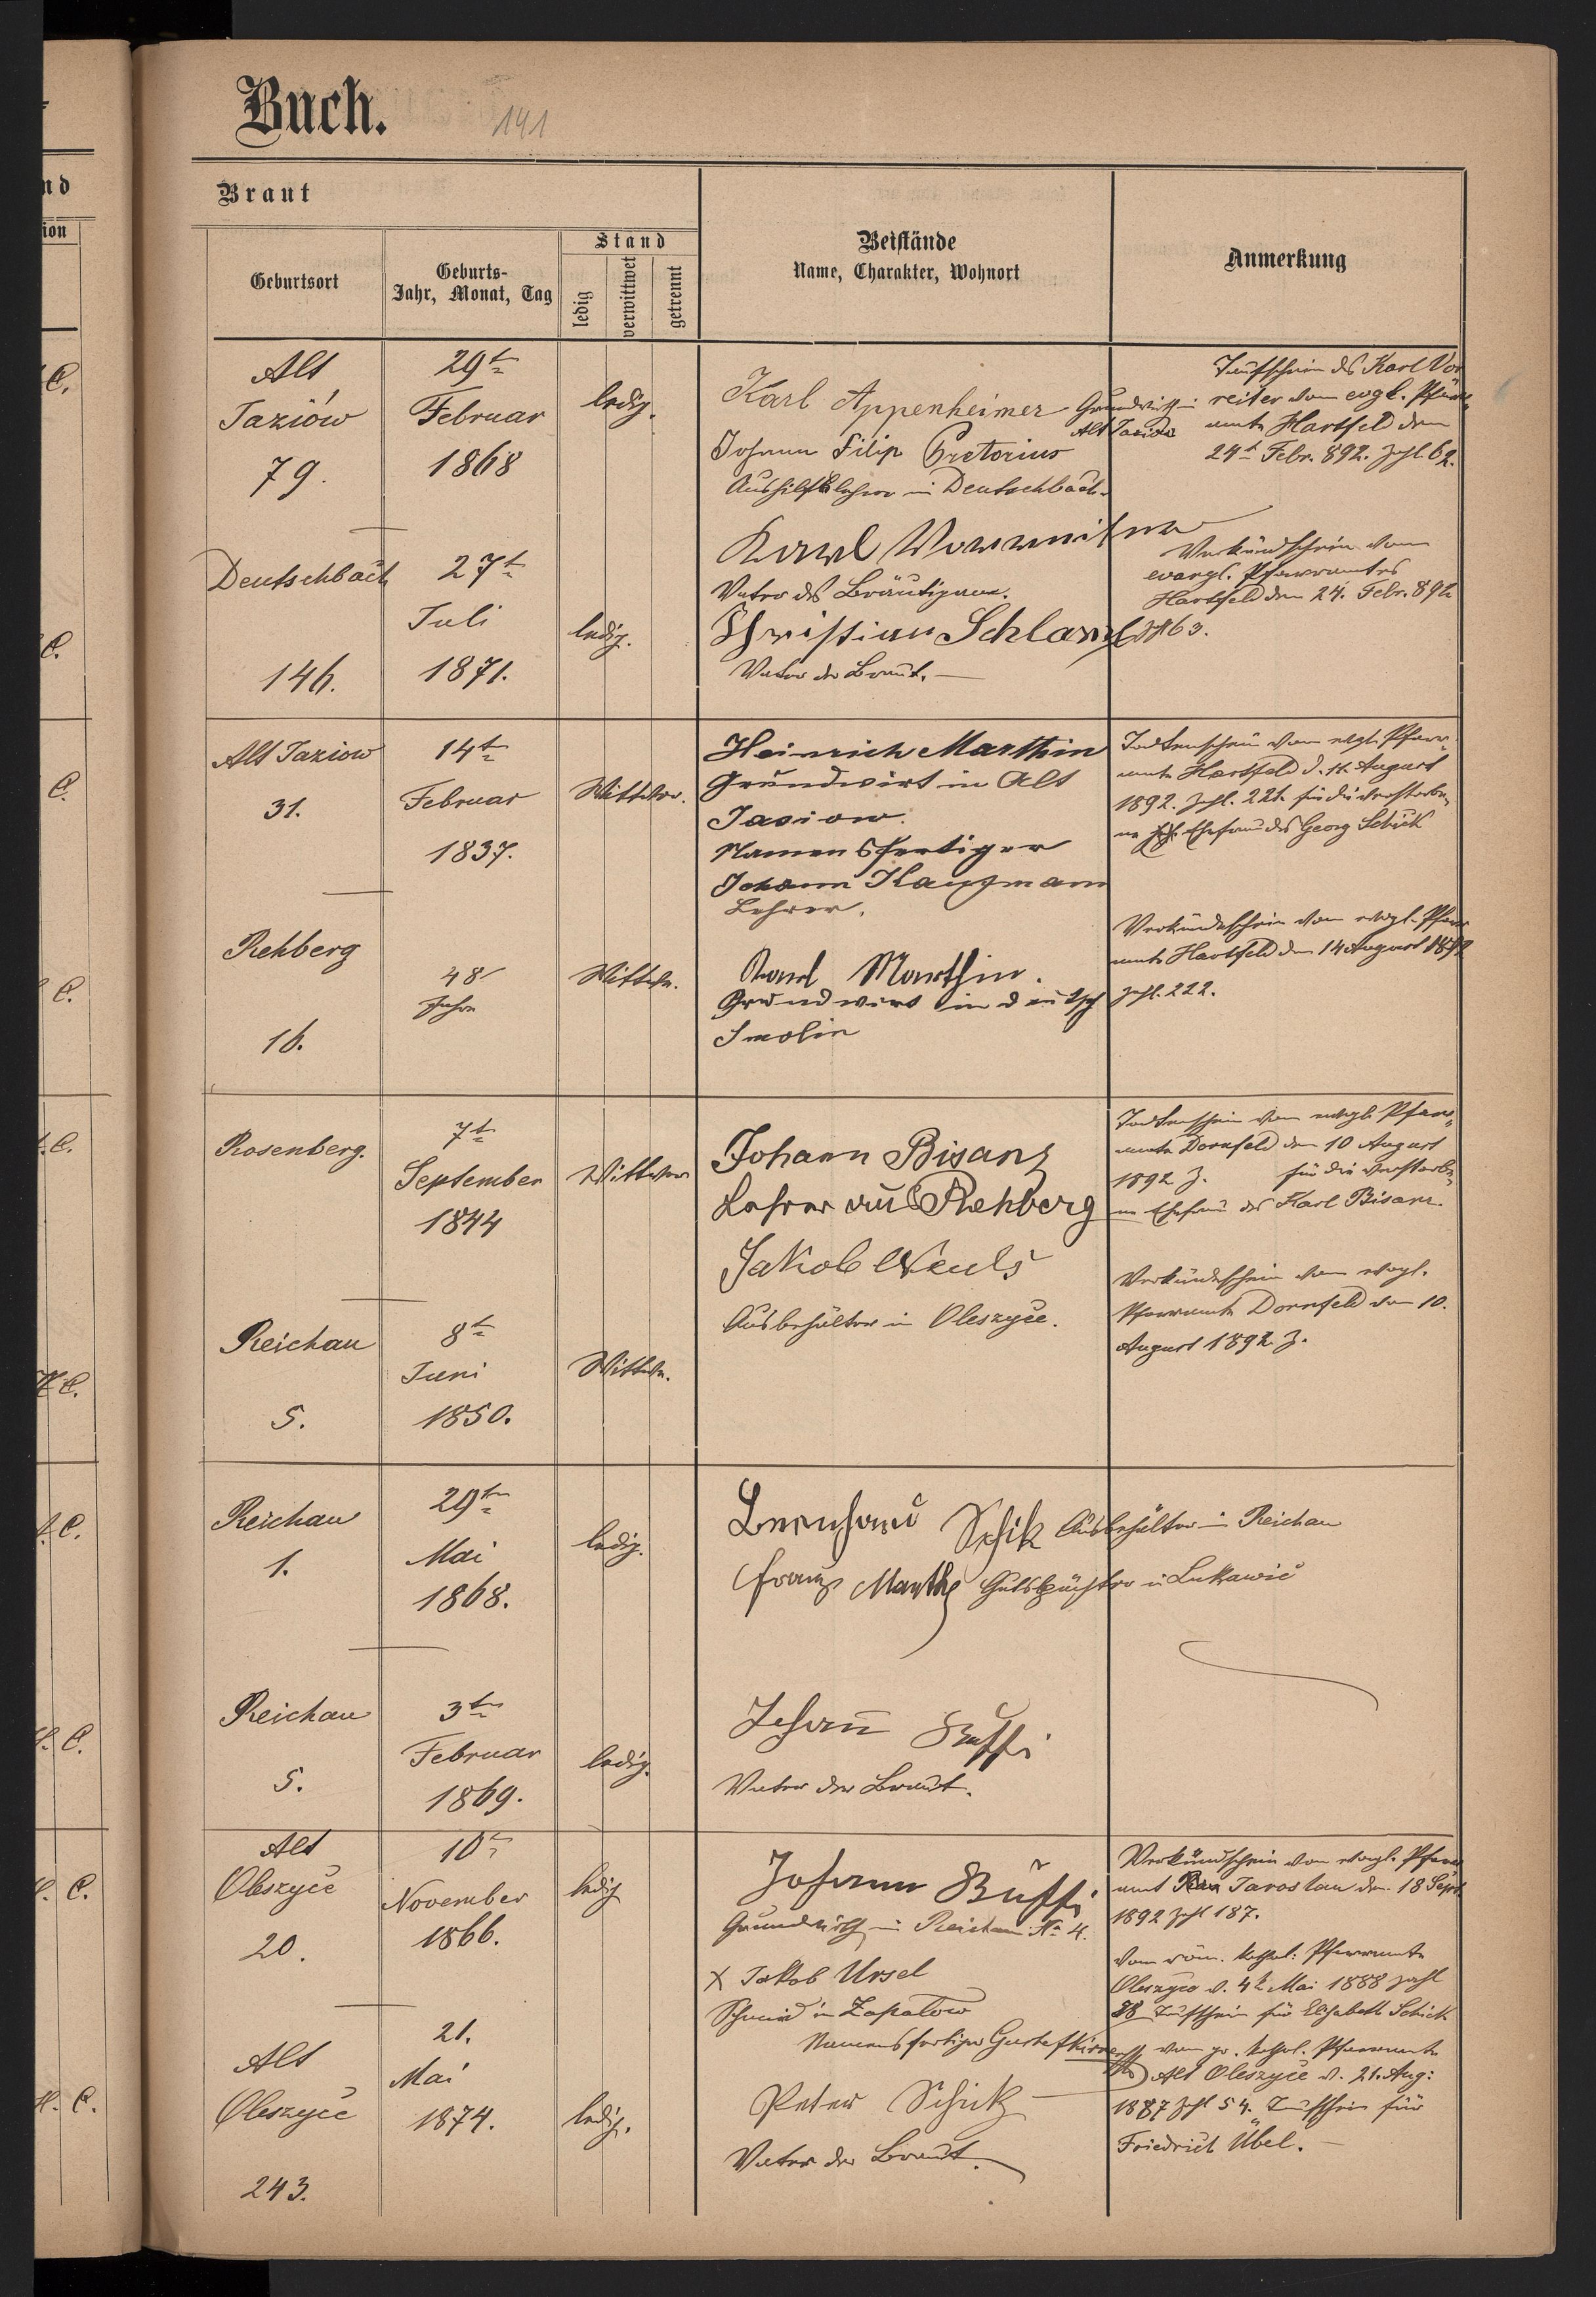 Buch.
141
Braut
Geburtsort
Geburts-
Jahr, Monat, Tag
Stand
ledig
verwittwet
getrennt
Beistände
Name, Charakter, Wohnort
Anmerkung
Alt
Jaziów
79.
29t
Februar
1868
ledig.
Karl Appenheimer Grundwirt in
Alt Jaziów
Johann Filip Pretorius
Aushilfslehrer in Deutschbach
Taufschein des Karl Vor
reiter vom evgl. Pfarr
amte Hartfeld den
24t Febr. 892. Zhl. 62.
Deutschbach
146.
27t
Juli
1871.
ledig.
Karl
Vater des Bräutigam.
Christian Schlarp
Vater der Braut.
Verkündschein vom
evangl. Pfarramtes
Hartfeld den 24. Febr. 892
63.
Alt Jaziow
31.
14t
Februar
1837.
Wittwer.
Heinrich Marthin
Grundwirt in Alt
Jasiow.
Namensfertiger
Johann Kaufmann
Lehrer.
Todtenschein vom evgl. Pfarr
amte Hartfeld d. 11. August
1892. Zhl. 221. für die verstorbe
ne Ehefrau des Georg Schick
Rehberg
16.
48
Jahre
Wittwe.
Karl Marthin.
Grundwirt in deutsch
Smolin
Verkündschein vom evgl. Pfarr
amte Hartfeld den 14 August 1892
Zhl. 222.
Rosenberg.
7t
September
1844
Wittwer
Johann Bisanz
Lehrer aus Rehberg
Jakob
Ausbehälter in Oleszyce.
Todtenschein vom evgl. Pfarr
amte Dornfeld den 10 August
1892 Z. für die verstorbe
ne Ehefrau des Karl Bisanz.
Reichau
5.
8t
Juni
1850.
Wittwe.
Verkündschein vom evgl.
Pfarramte Dornfeld vom 10.
August 1892 Z.
Reichau
1.
29t
Mai
1868.
ledig.
Bernhard Schik Ausbehälter in Reichau
Franz Manthe Gutspächter in Lukawic
Reichau
5.
3t
Februar
1869.
ledig.
Johann
Vater der Braut.
Alt
Oleszyce
20.
10t
November
1866.
ledig
Johann
Grundwirth in Reichau No 4.
X Jakob Ursel
Schmied in Zapalow
Namensfertiger Gustaf
Verkündschein vom evgl. Pfarr
amt Jaroslau den 18 Sept.
1892 Zhl 187.
Vom röm. kathol. Pfarramte
Oleszyce d. 4t Mai 1888 Zahl
88 Taufschein für Elisabeth Schick
Alt
Oleszyce
243.
21.
Mai
1874.
ledig.
Peter Schick
Vater der Braut.
vom gr. kathol. Pfarramte
Alt Oleszyce d. 21. Aug:
1887 Zhl 54. Taufschein für
Friedrich Übel.